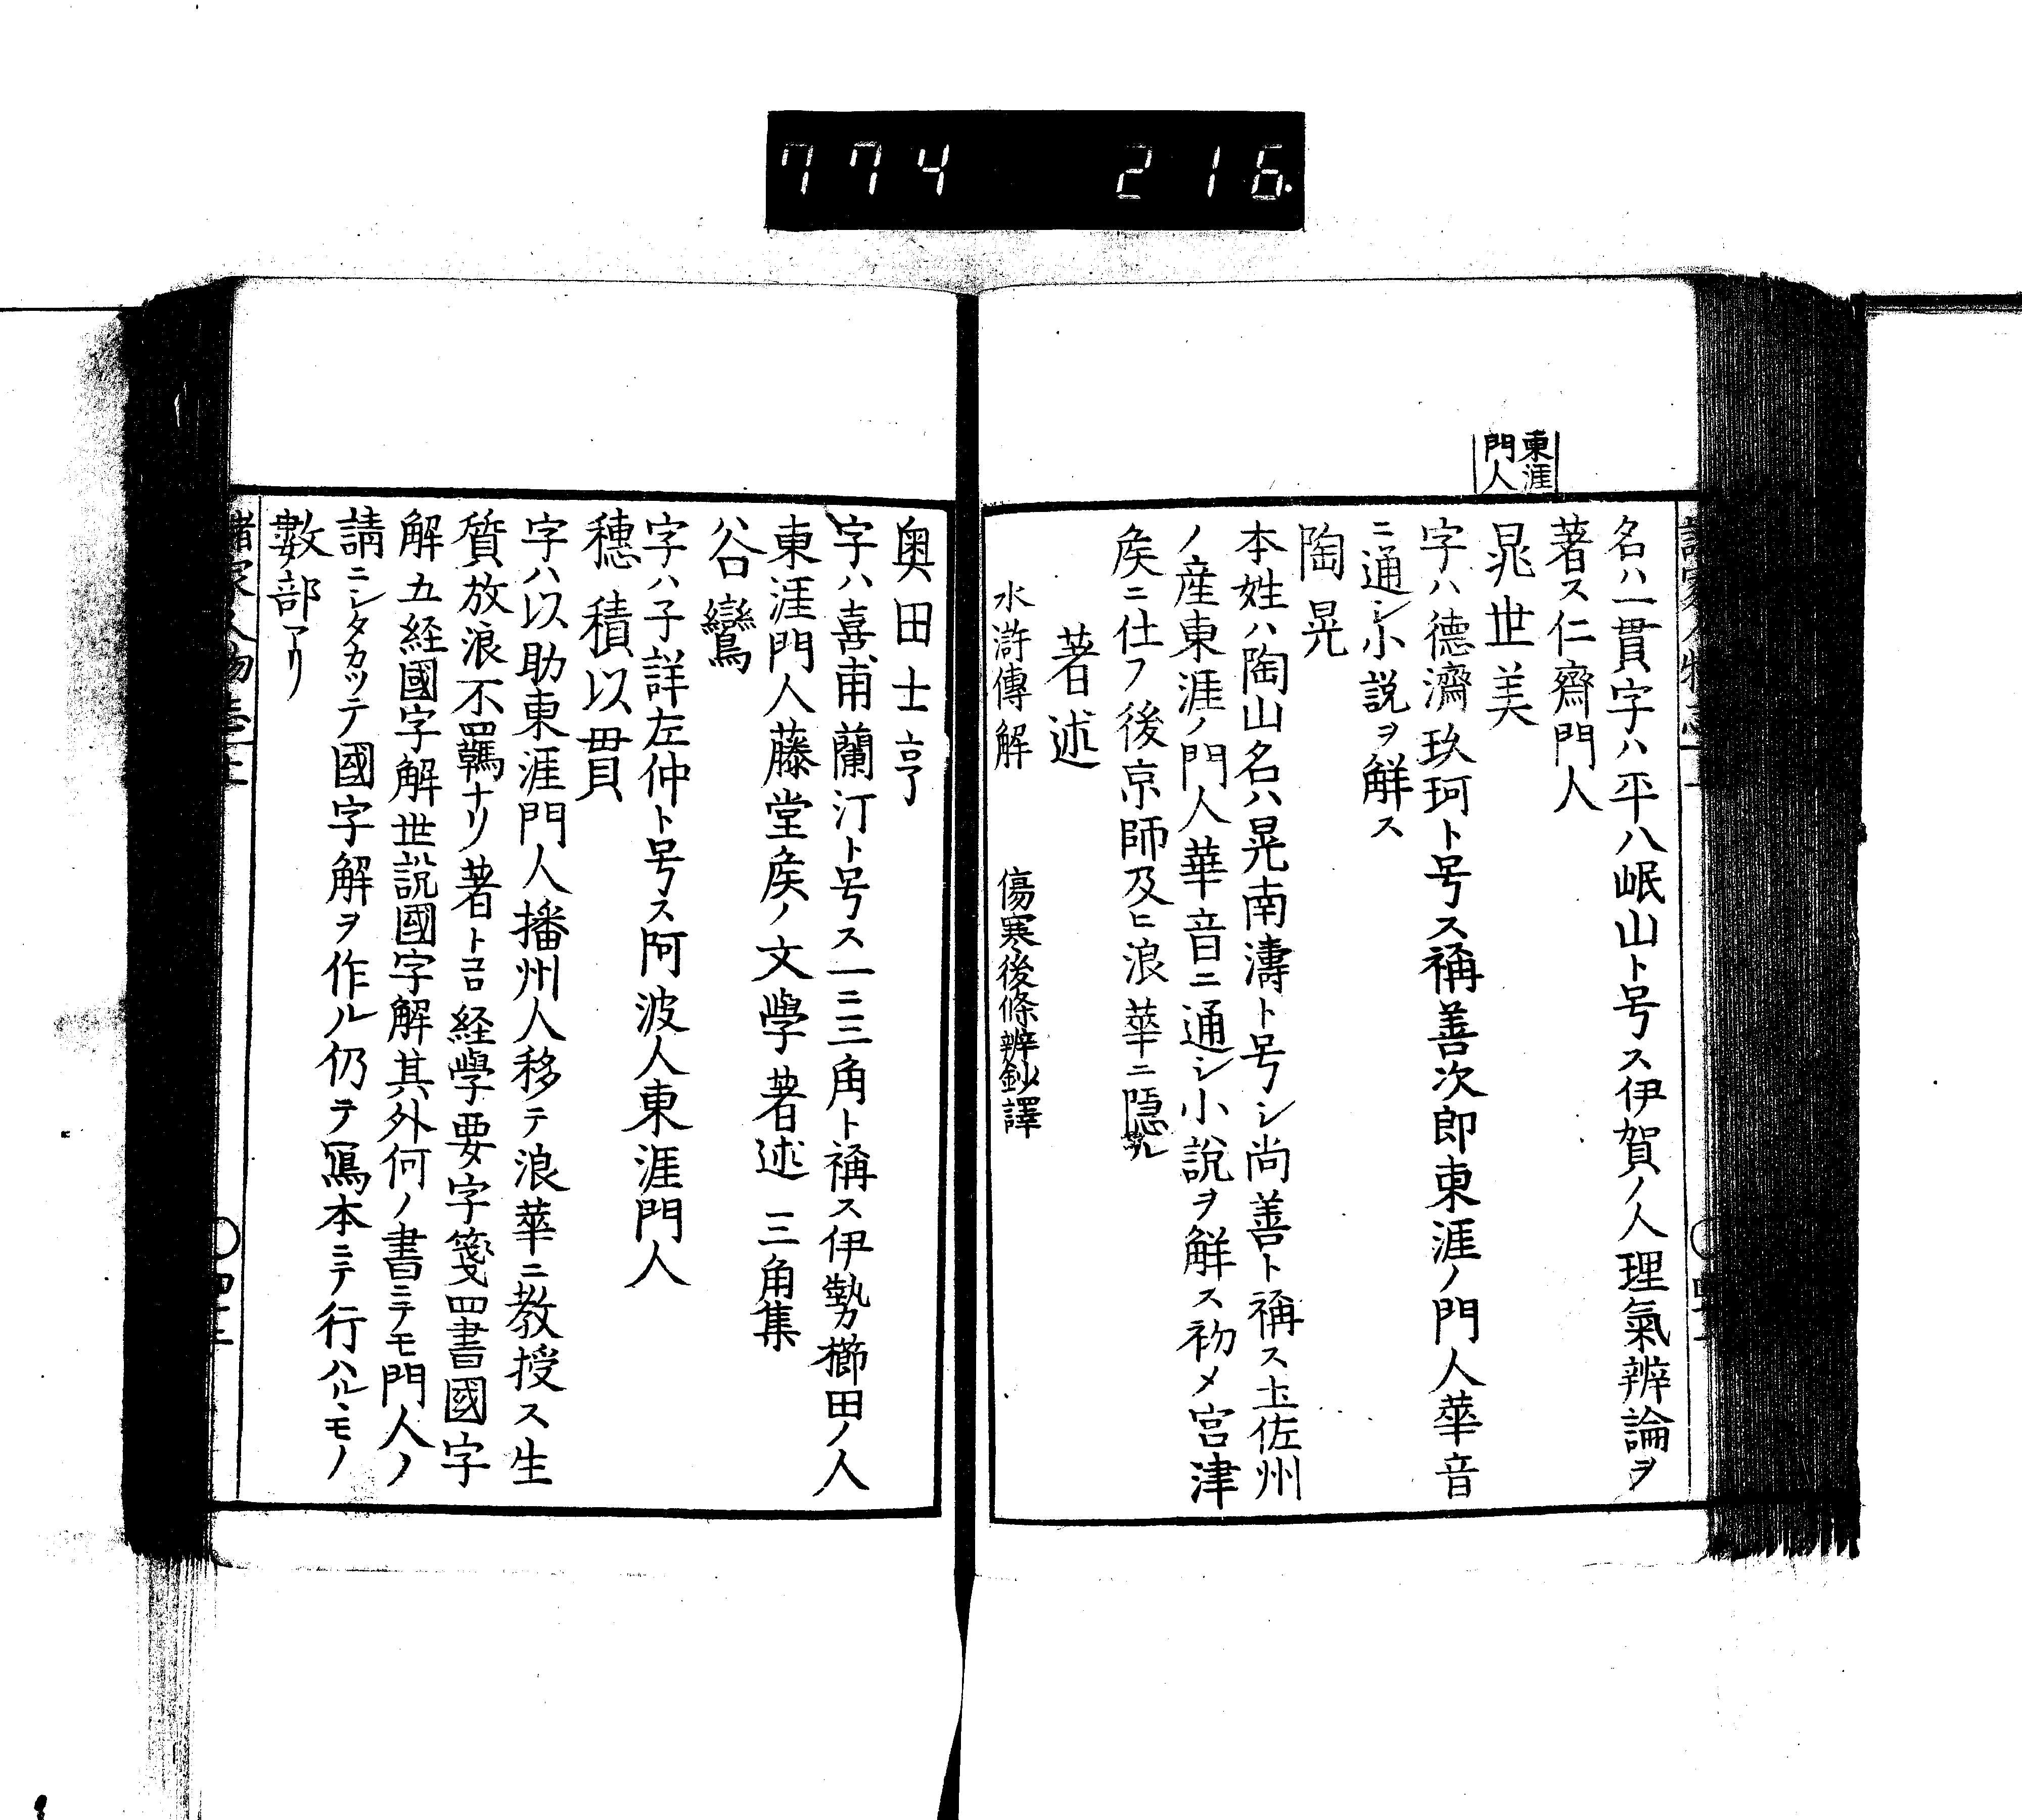 774 216
東涯
門人
名ハ一貫字ハ平八岷山ト号ス伊賀ノ人理氣辨論ヲ
著ス仁齋門人
晁世美
字ハ德濟玖珂ト号ス稱善次郎東涯ノ門人華音
ニ通シ小説ヲ解ス
陶晃
本姓ハ陶山名ハ晃南濤ト号シ尚善ト稱ス土佐州
ノ産東涯ノ門人華音ニ通シ小説ヲ解ス初メ宮津
矦ニ仕フ後京師及ヒ浪華ニ隱ル
著述
水滸傳解 傷寒後條辨鈔譯
奥田士亨
字ハ喜甫蘭汀ト号ス一ニ三角ト稱ス伊勢櫛田ノ人
東涯門人藤堂矦ノ文學著述 三角集
谷鸞
字ハ子詳左仲ト号ス阿波人東涯門人
穗積以貫
字ハ以助東涯門人播州人移テ浪華ニ教授ス生
質放浪不羈ナリ著ト〓経學要字箋四書國字
解五経國字解世説國字解其外何ノ書ニテモ門人ノ
請ニシタカツテ國字解ヲ作ル仍テ寫本ニテ行ハルヽモノ
數部アリ